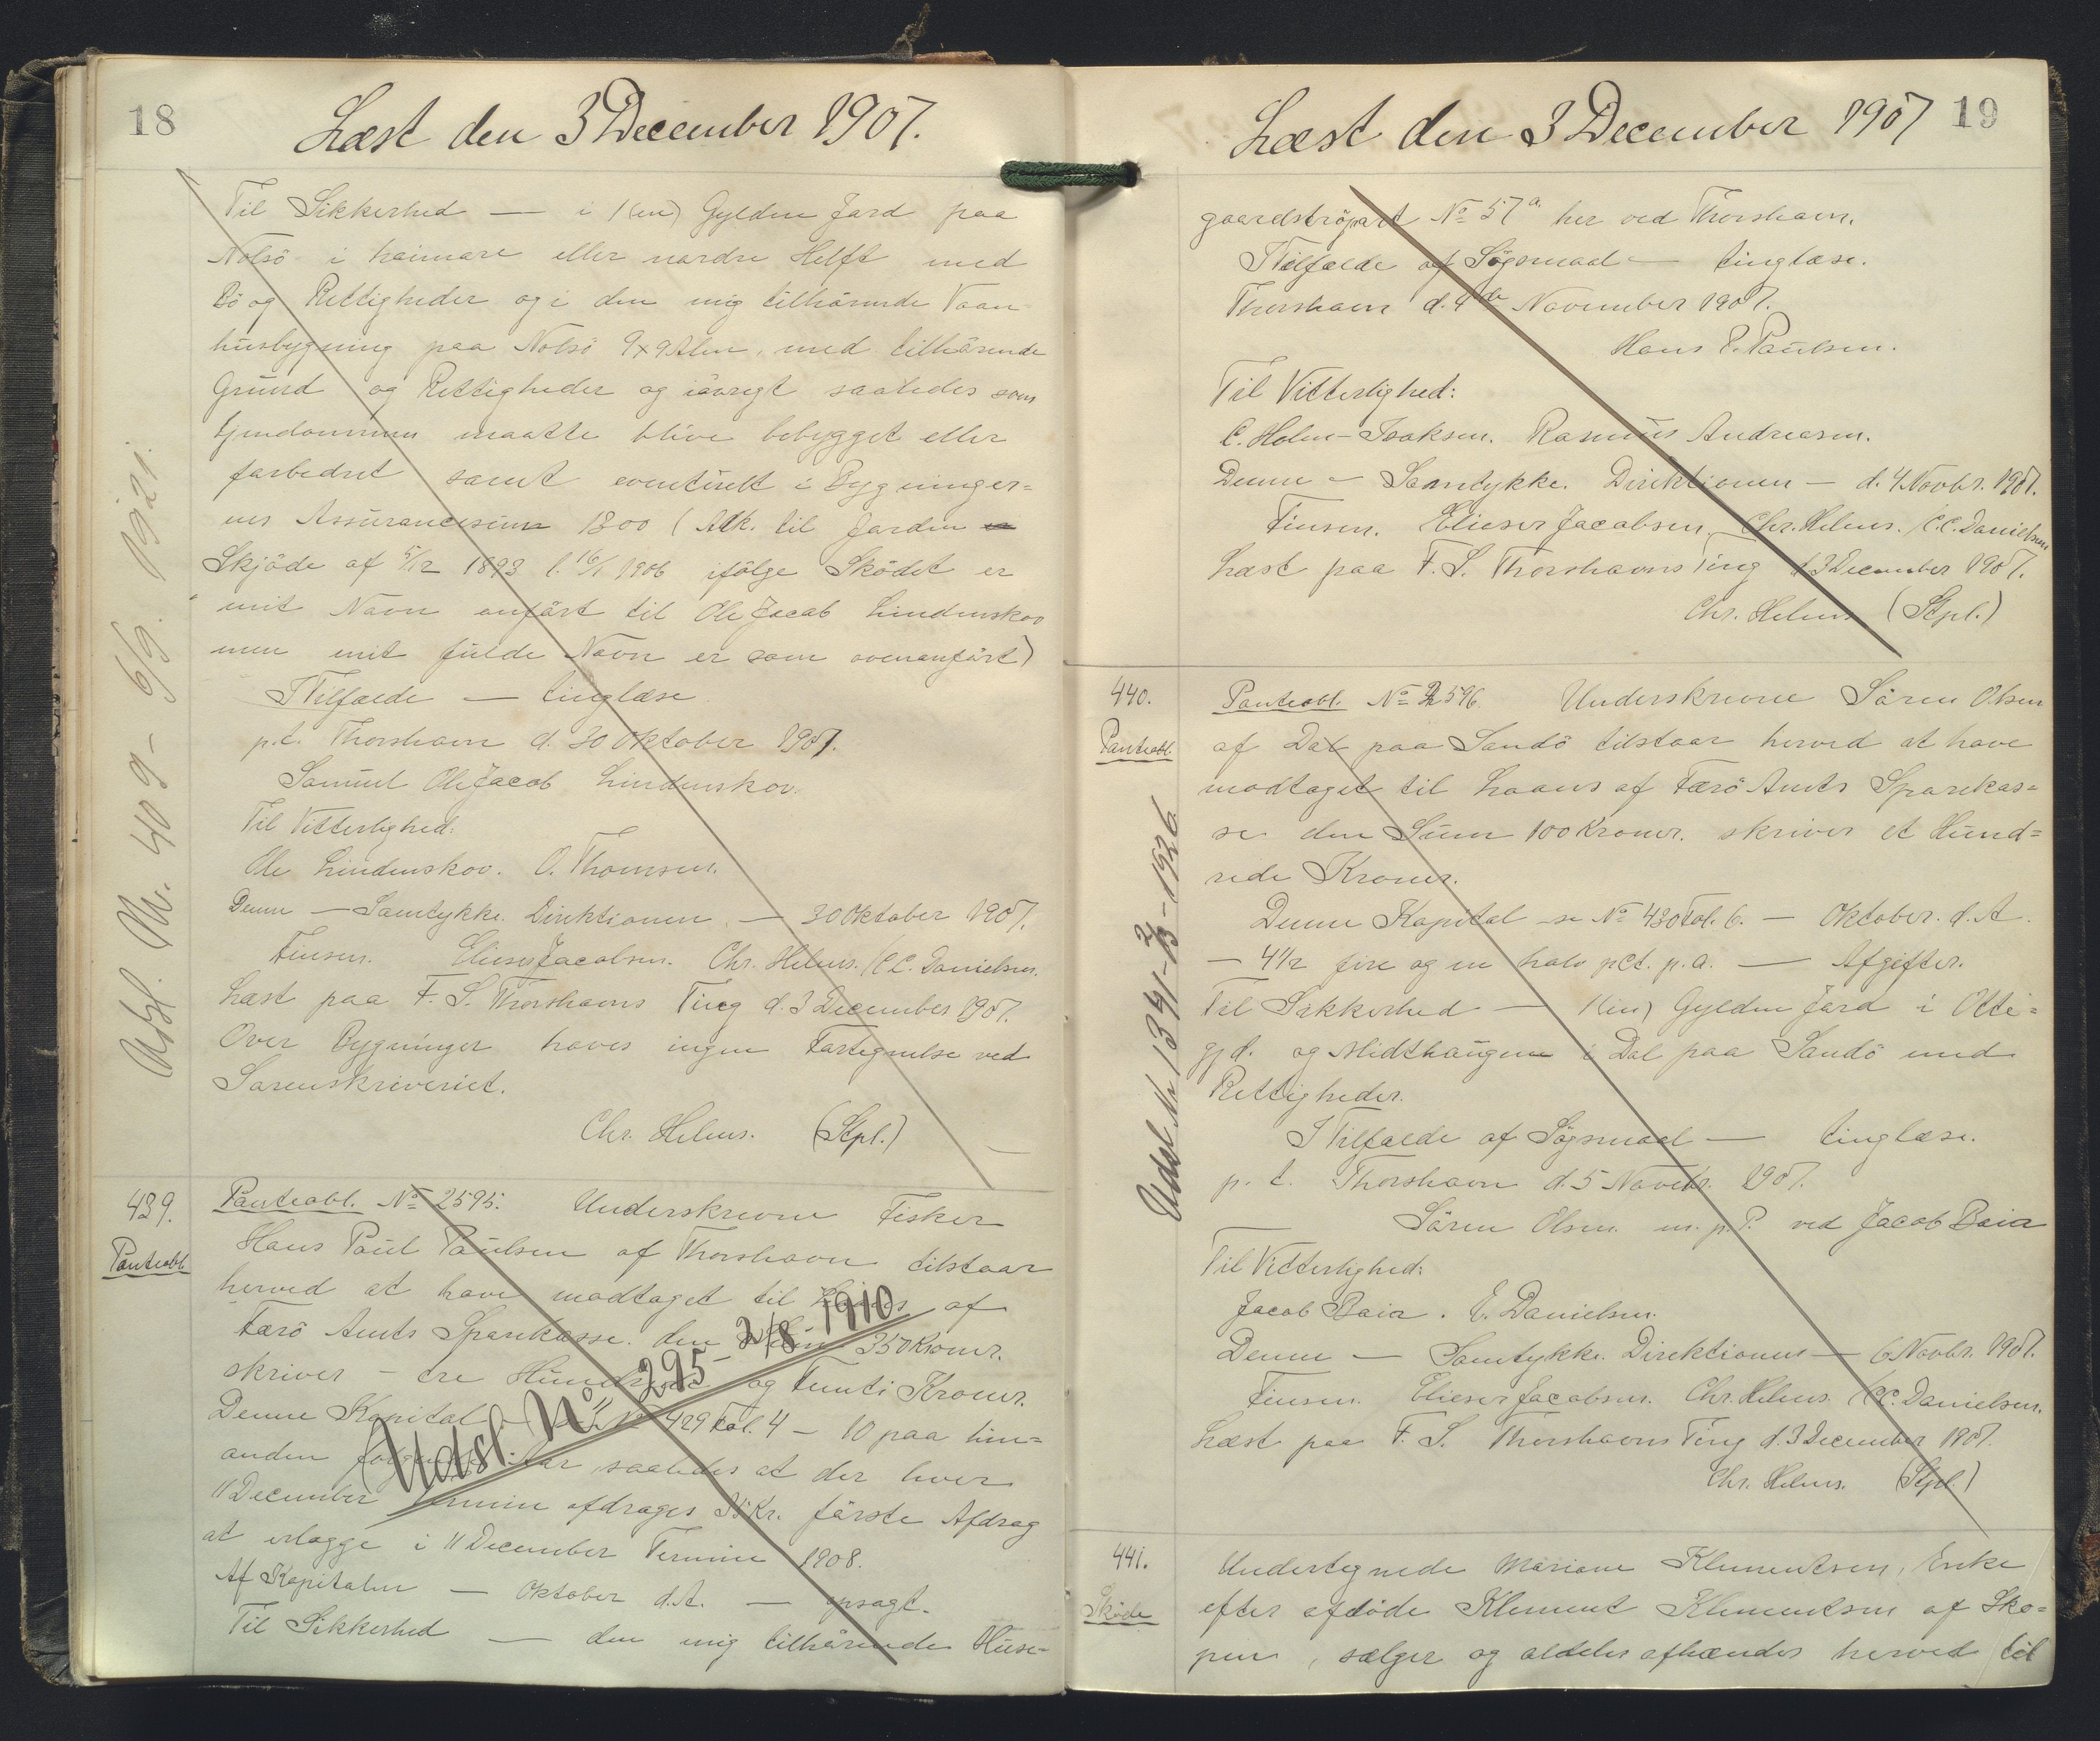 18
Læst den 3 December 1907.
Til Sikkerhed — i 1 (en) Gylden Jord paa
Nolsö i heimare eller nordre Helft med
Bö og Rettigheder og i den mig tilhörende Vaan-
husbygning paa Nolsö 9x9 Alen, med tilhörende
Grund og Rettigheder og iövrigt saaledes som
Ejendommen maatte blive bebygget eller
forbedret samt eventuelt i Bygninger=
nes Assurancesum 1800 (Adk. til Jorden
Skjöde af 5/12 1893 l. 16/1 1906 ifölge Sködet er
mit Navn anfört til Ole Jacob Lindenskov
men mit fulde Navn er som ovenanfört)
I Tilfælde — tinglæse
p.t. Thorshavn d. 30 Oktober 1907.
Samuel Ole Jacob Lindenskov.
Til Vitterlighed:
Ole Lindenskov. O. Thomsen.
Denne — Samtykke. Direktionen — 30 Oktober 1907.
Finsen. Elieser Jacobsen. Chr. Helms. / C.C. Danielsen.
Læst paa F. S. Thorshavns Ting d. 3 December 1907.
Over Bygninger haves ingen Fortegnelse ved
Sorenskriveriet.
Chr. Helms. (Stpl.)
Udsl. Nr. 409 - 6/9. 1921.
439.
Panteobl.
Panteobl. No 2595. Underskrevne Fisker
Hans Paul Paulsen af Thorshavn tilstaar
herved at have modtaget til Laans af
Færö Amts Sparekasse den Sum 350 Kroner.
skriver - tre Hundrede og Femti Kroner.
Denne Kapital - se No 429 Fol. 4 - 10 paa hin=
anden fölgende Aar, saaledes at der hver
11 December Termin afdrages 35 Kr. förste Afdrag
at erlægge i 11 December Termin 1908.
Af Kapitalen — Oktober d.A. — opsagt.
Til Sikkerhed — den mig tilhörende Huse-
Udsl. No 295 - 2/8 1910
19
Læst den 3 December 1907
gaardströpart No 57a her ved Thorshavn.
I Tilfælde af Sögsmaal — tinglæse.
Thorshavn d. 4de November 1907.
Hans P. Paulsen.
Til Vitterlighed:
C. Holm-Isaksen. Rasmus Andreasen.
Denne - Samtykke. Direktionen — d. 4 Novbr. 1907.
Finsen. Elieser Jacobsen. Chr. Helms. / C.C. Danielsen
Læst paa F. S. Thorshavns Ting d. 3 December 1907.
Chr. Helms (Stpl.)
440.
Panteobl.
Panteobl. No 2596. Underskrevne Sören Olsen
af Dal paa Sandö tilstaar herved at have
modtaget til Laans af Færö Amts Sparekas=
se den Sum 100 Kroner. skriver et Hund=
rede Kroner.
Denne Kapital — se No 430 Fol. 6. — Oktober. d.A.
— 4 1/2 fire og en halv pCt. p.a. — Afgifter.
Til Sikkerhed — 1 (en) Gylden Jord i Otte=
gjd. og Midthaugene i Dal paa Sandö med
Rettigheder.
I Tilfælde af Sögsmaal — tinglæse.
p. t. Thorshavn d. 5 Novebr. 1907.
Sören Olsen m. p. P. ved Jacob Baia
Til Vitterlighed:
Jacob Baia. E. Danielsen.
Denne — Samtykke. Direktionen — 6 Novbr. 1907.
Finsen. Elieser Jacobsen. Chr. Helms. / C.C. Danielsen.
Læst paa F. S. Thorshavns Ting d. 3 December 1907.
Chr. Helms. (Stpl.)
Udsl. Nr 1341 - 1926
441.
Sköde
Undertegnede Mariane Klementsen, Enke
efter afdöde Klement Klementsen af Sko=
pen, sælger og aldeles afhænder herved til